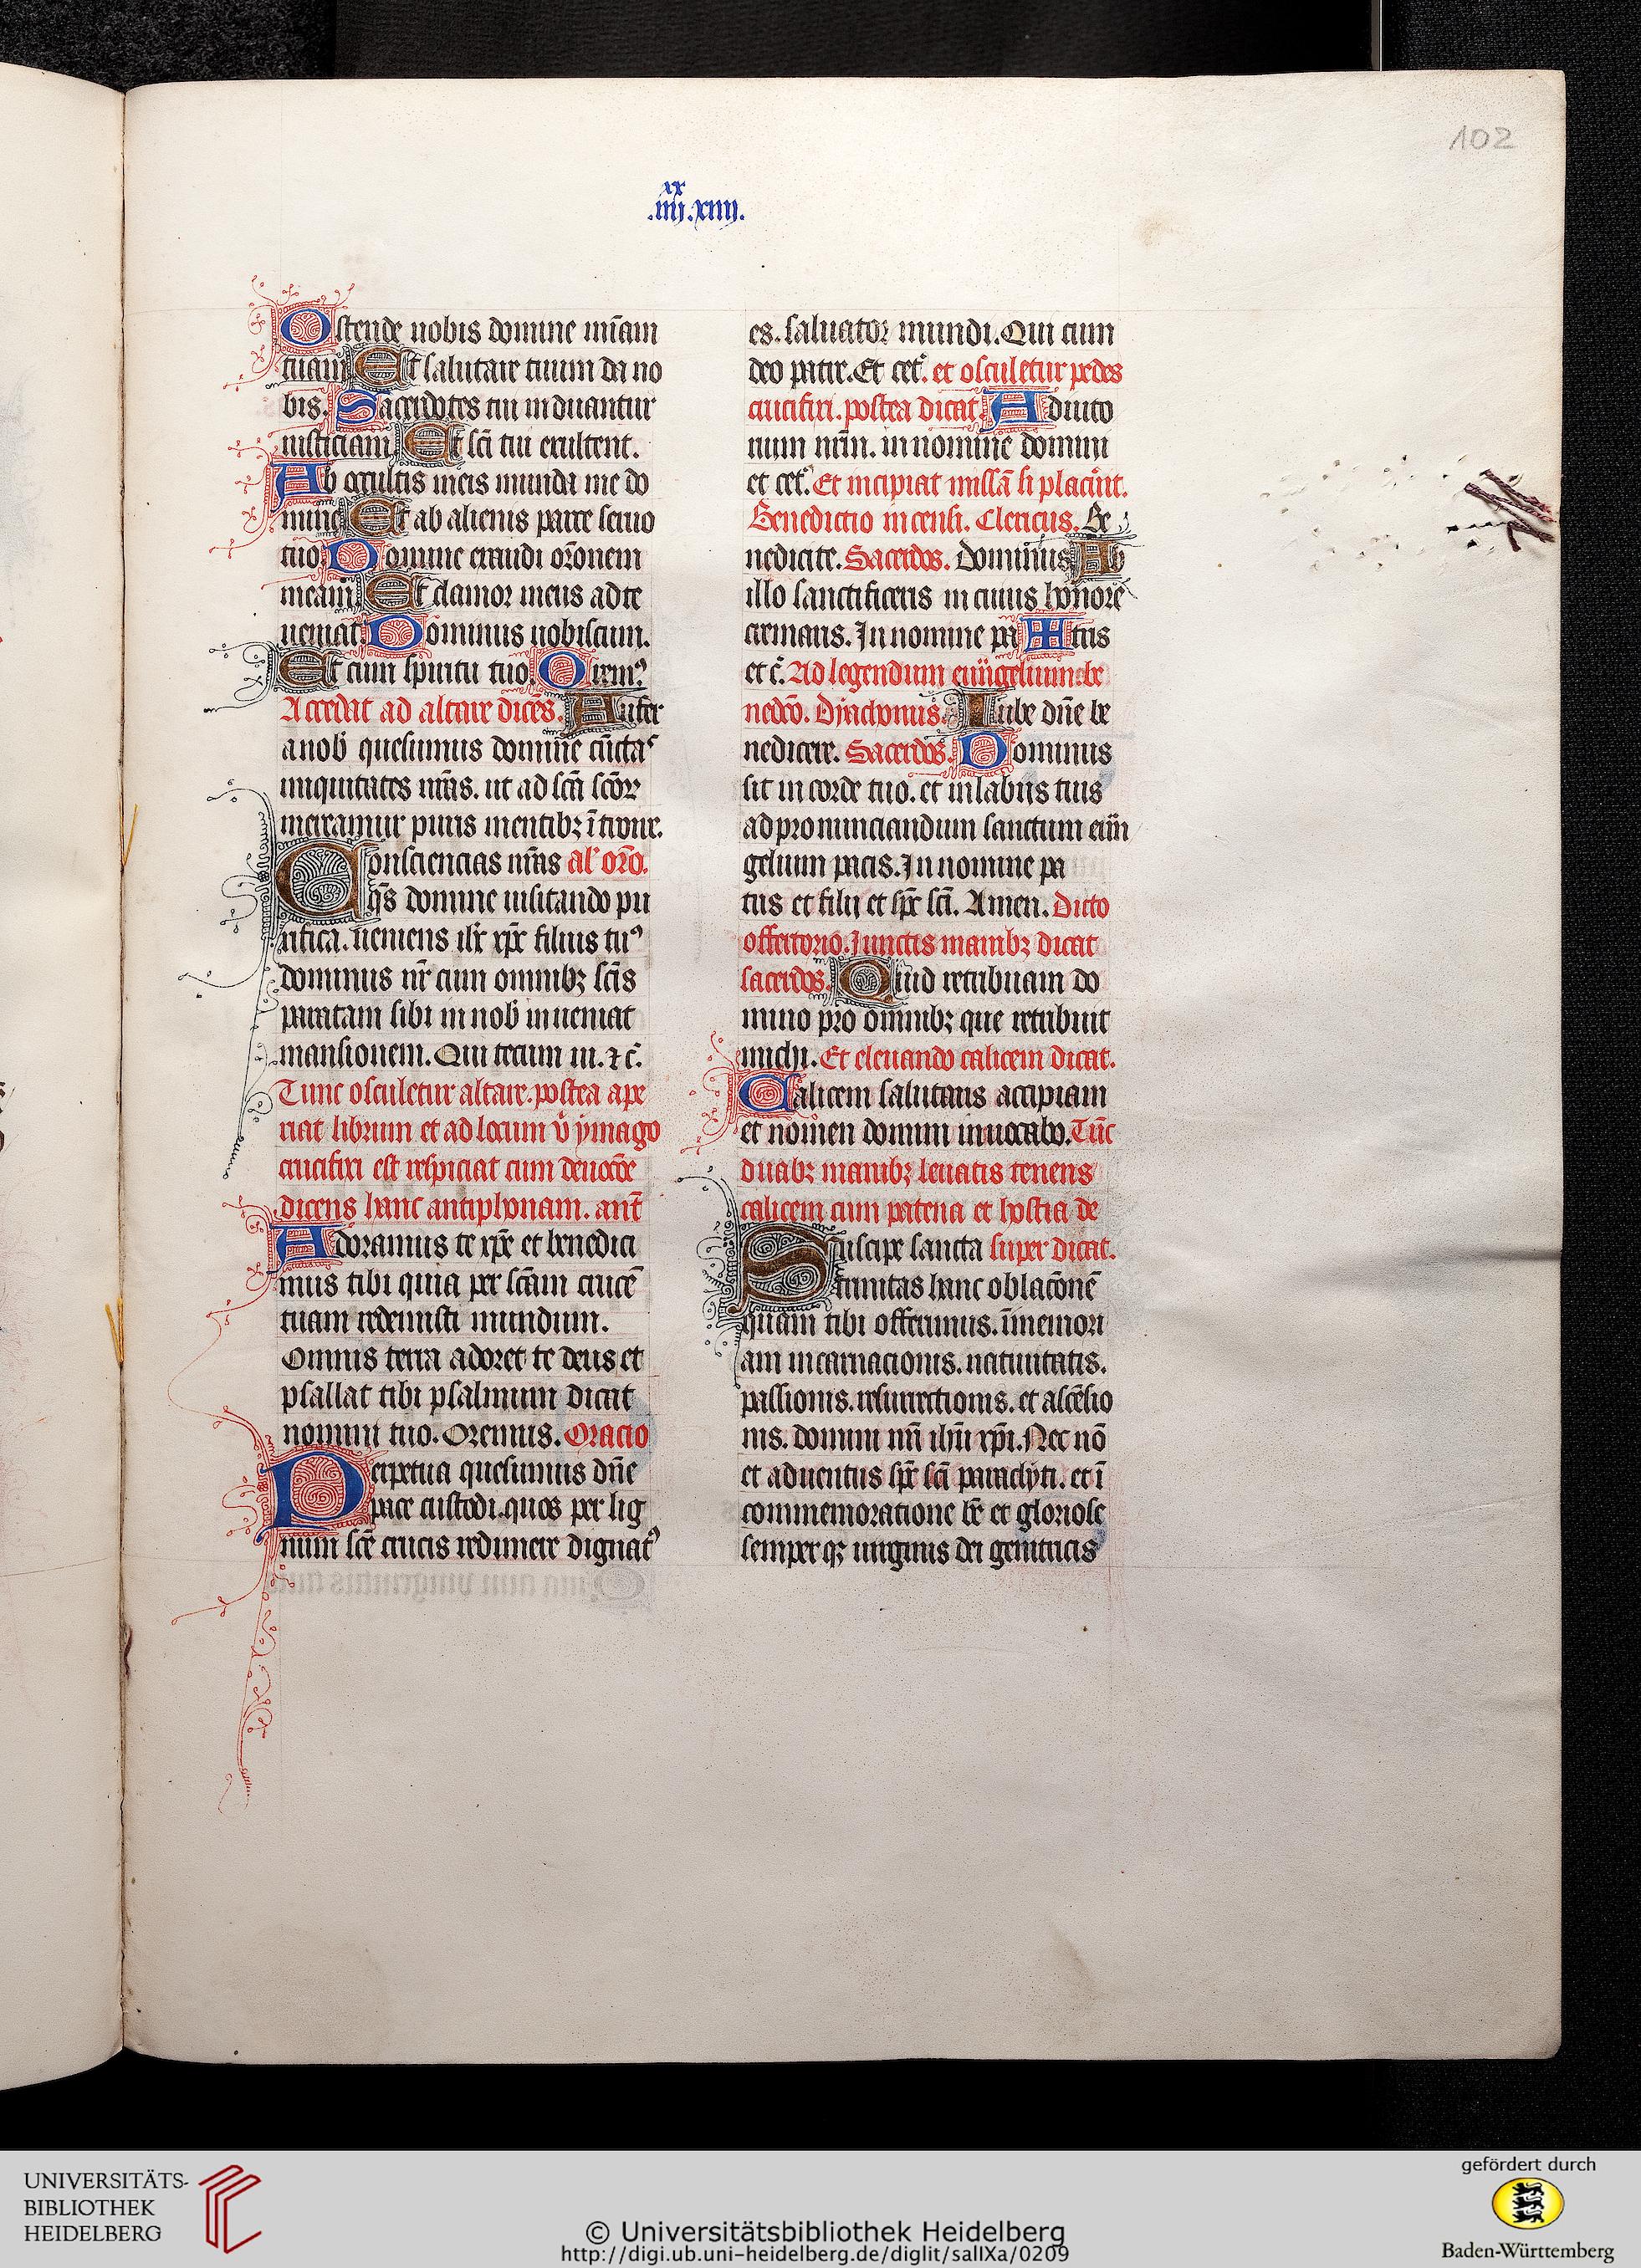 102
xx
.iiij.xiiij.
Ostende nobis domine mīam
tuam Et salutare tuum da no
bis. Sacerdotes tui induantur
iusticiam Et scī tui exultent.
Ab occultis meis munda me do
mine Et ab alienis parce seruo
tuo Domine exaudi orōnem
meam Et clamor meus ad te
ueniat Dominus uobiscum.
Et cum spiritu tuo Oremꝰ
Accedat ad altare dicēs. Aufer
a nob̄ quesumus domine cūctas
iniquitates nrās. ut ad scā scōꝝ
mereamur puris mentibꝫ ītroire.
Consciencias nrās al' orō.
qs̄ domine uisitando pu
rifica. ueniens ih̄c xp̄c filius tuꝰ
dominus nr̄ cum omnibꝫ scīs
paratam sibi in nob̄ inueniat
mansionem. Qui tecum ui. ⁊ c̄.
Tunc osculetur altare. postea ape
riat librum et ad locum v̊ ymago
crucifixi est respiciat cum deuocōe
dicens hanc antiphonam. ant̄
Adoramus te xp̄e et benedici
mus tibi quia per scām crucē
tuam redemisti mundum.
Omnis terra adoret te deus et
psallat tibi psalmum dicat
nomini tuo. Oremus. Oracio
Perpetua quesumus dn̄e
pace custodi. quos per lig
num scē crucis redimere dignatꝰ
es. saluator mundi. Qui cum
deo patre. Et cet̄. et osculetur pedes
crucifixi. postea dicat Adiuto
rium nrm̄. in nomine domini
et cet̄. Et incipiat missā si placūit.
Benedictio incensi. Clericus. Be
nedicite. Sacerdos. Dominus Ab
illo sanctificeris in cuius honore
cremaris. In nomine pa✠tris
et c̄. Ad legendum euūgelium be
nedcō. Dyachonus. Iube dn̄e be
nedicere. Sacerdos. Dominus
sit in corde tuo. et in labiis tuis
ad pronunciandum sanctum euū
gelium pacis. In nomine pa
tris et filij et sp̄c scī. Amen. Dicto
offertorio. Iunctis manibꝫ dicat
sacerdos. Quid retribuam do
mino pro omnibꝫ que retribuit
michi. Et eleuando calicem dicat.
Calicem salutaris accipiam
et nomen domini inuocabo. Tūc
duabꝫ manibꝫ leuatis tenens
calicem cum patena et hostia de
Suscipe sancta super dicat.
trinitas hanc oblacōnē
quam tibi offerimus. ī memori
am incarnacionis. natiuitatis.
passionis. resurrectionis. et ascēsio
nis. domini nrī ih̄u xp̄i. Nec nō
et aduentus sp̄c scī paraclyti. et ī
commemoratione bē et gloriose
semper qꝫ uirginis dei genitricis
UNIVERSITÄTS-
BIBLIOTHEK
HEIDELBERG
© Universitätsbibliothek Heidelberg
http://digi.ub.uni-heidelberg.de/diglit/salIXa/0209
gefördert durch
Baden-Württemberg